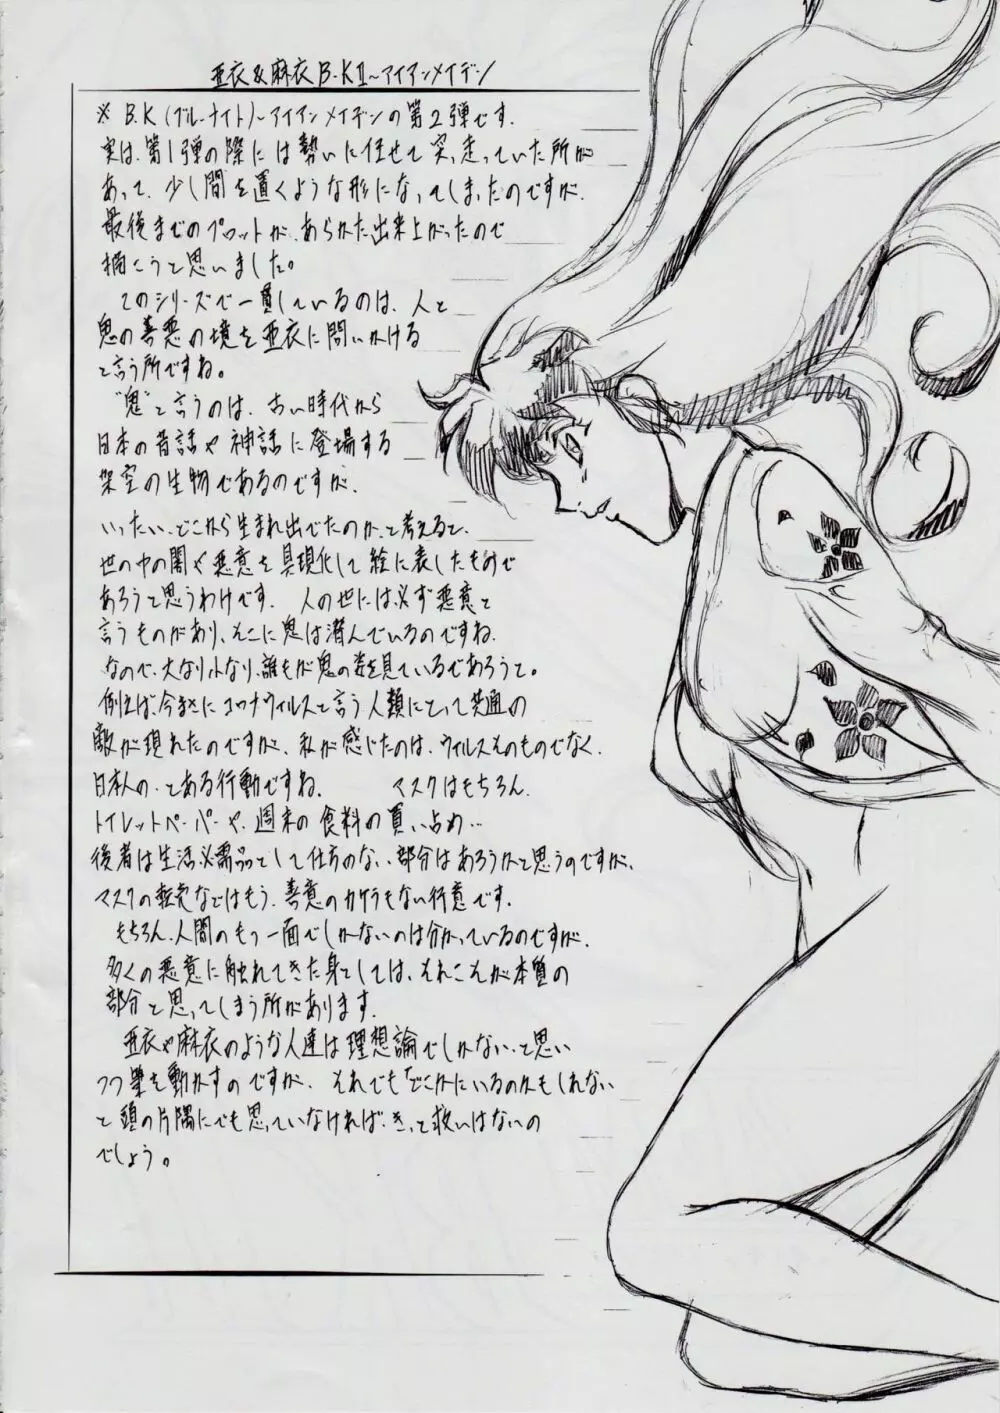 亜衣&麻衣 B.KⅡ~アイアンメイデン
※ B.K(ブルーナイト)~アイアンメイデンの第2弾です.
実は、第1弾の際には勢いに任せて突っ走っていた所が
あって、少し間を置くような形になってしまったのですが、
最後までのプロットが、あらかた出来上がったので
描こうと思いました。
このシリーズで一貫しているのは、人と
鬼の善悪の境を亜衣に問いかける
と言う所ですね。
"鬼"と言うのは、古い時代から
日本の昔話や神話に登場する
架空の生物であるのですが、
いったい、どこから生まれ出でたのか、と考えると、
世の中の闇や悪意を具現化して絵に表したもので
あろうと思うわけです. 人の世には必ず悪意と
言うものがあり、そこに鬼は潜んでいるのですね.
なので、大なり小なり、誰もが鬼の姿を見ているであろうと。
例えば、今まさにコロナウィルスと言う人類にとって共通の
敵が現れたのですが、私が感じたのは、ウィルスそのものでなく、
日本人の、とある行動ですね. マスクはもちろん、
トイレットペーパーや、週末の食料の買い占め…
後者は生活必需品として仕方のない部分はあろうかと思うのですが、
マスクの転売などはもう、善意のカケラもない行意です.
もちろん、人間のもつ一面でしかないのは分かっているのですが、
多くの悪意に触れてきた身としては、それこそが本質の
部分と思ってしまう所があります.
亜衣や麻衣のような人達は理想論でしかない、と思い
つつ筆を動かすのですが、それでも「どこかにいるのかもしれない
と頭の片隅にでも思っていなければ、きっと救いはないの
でしょう。